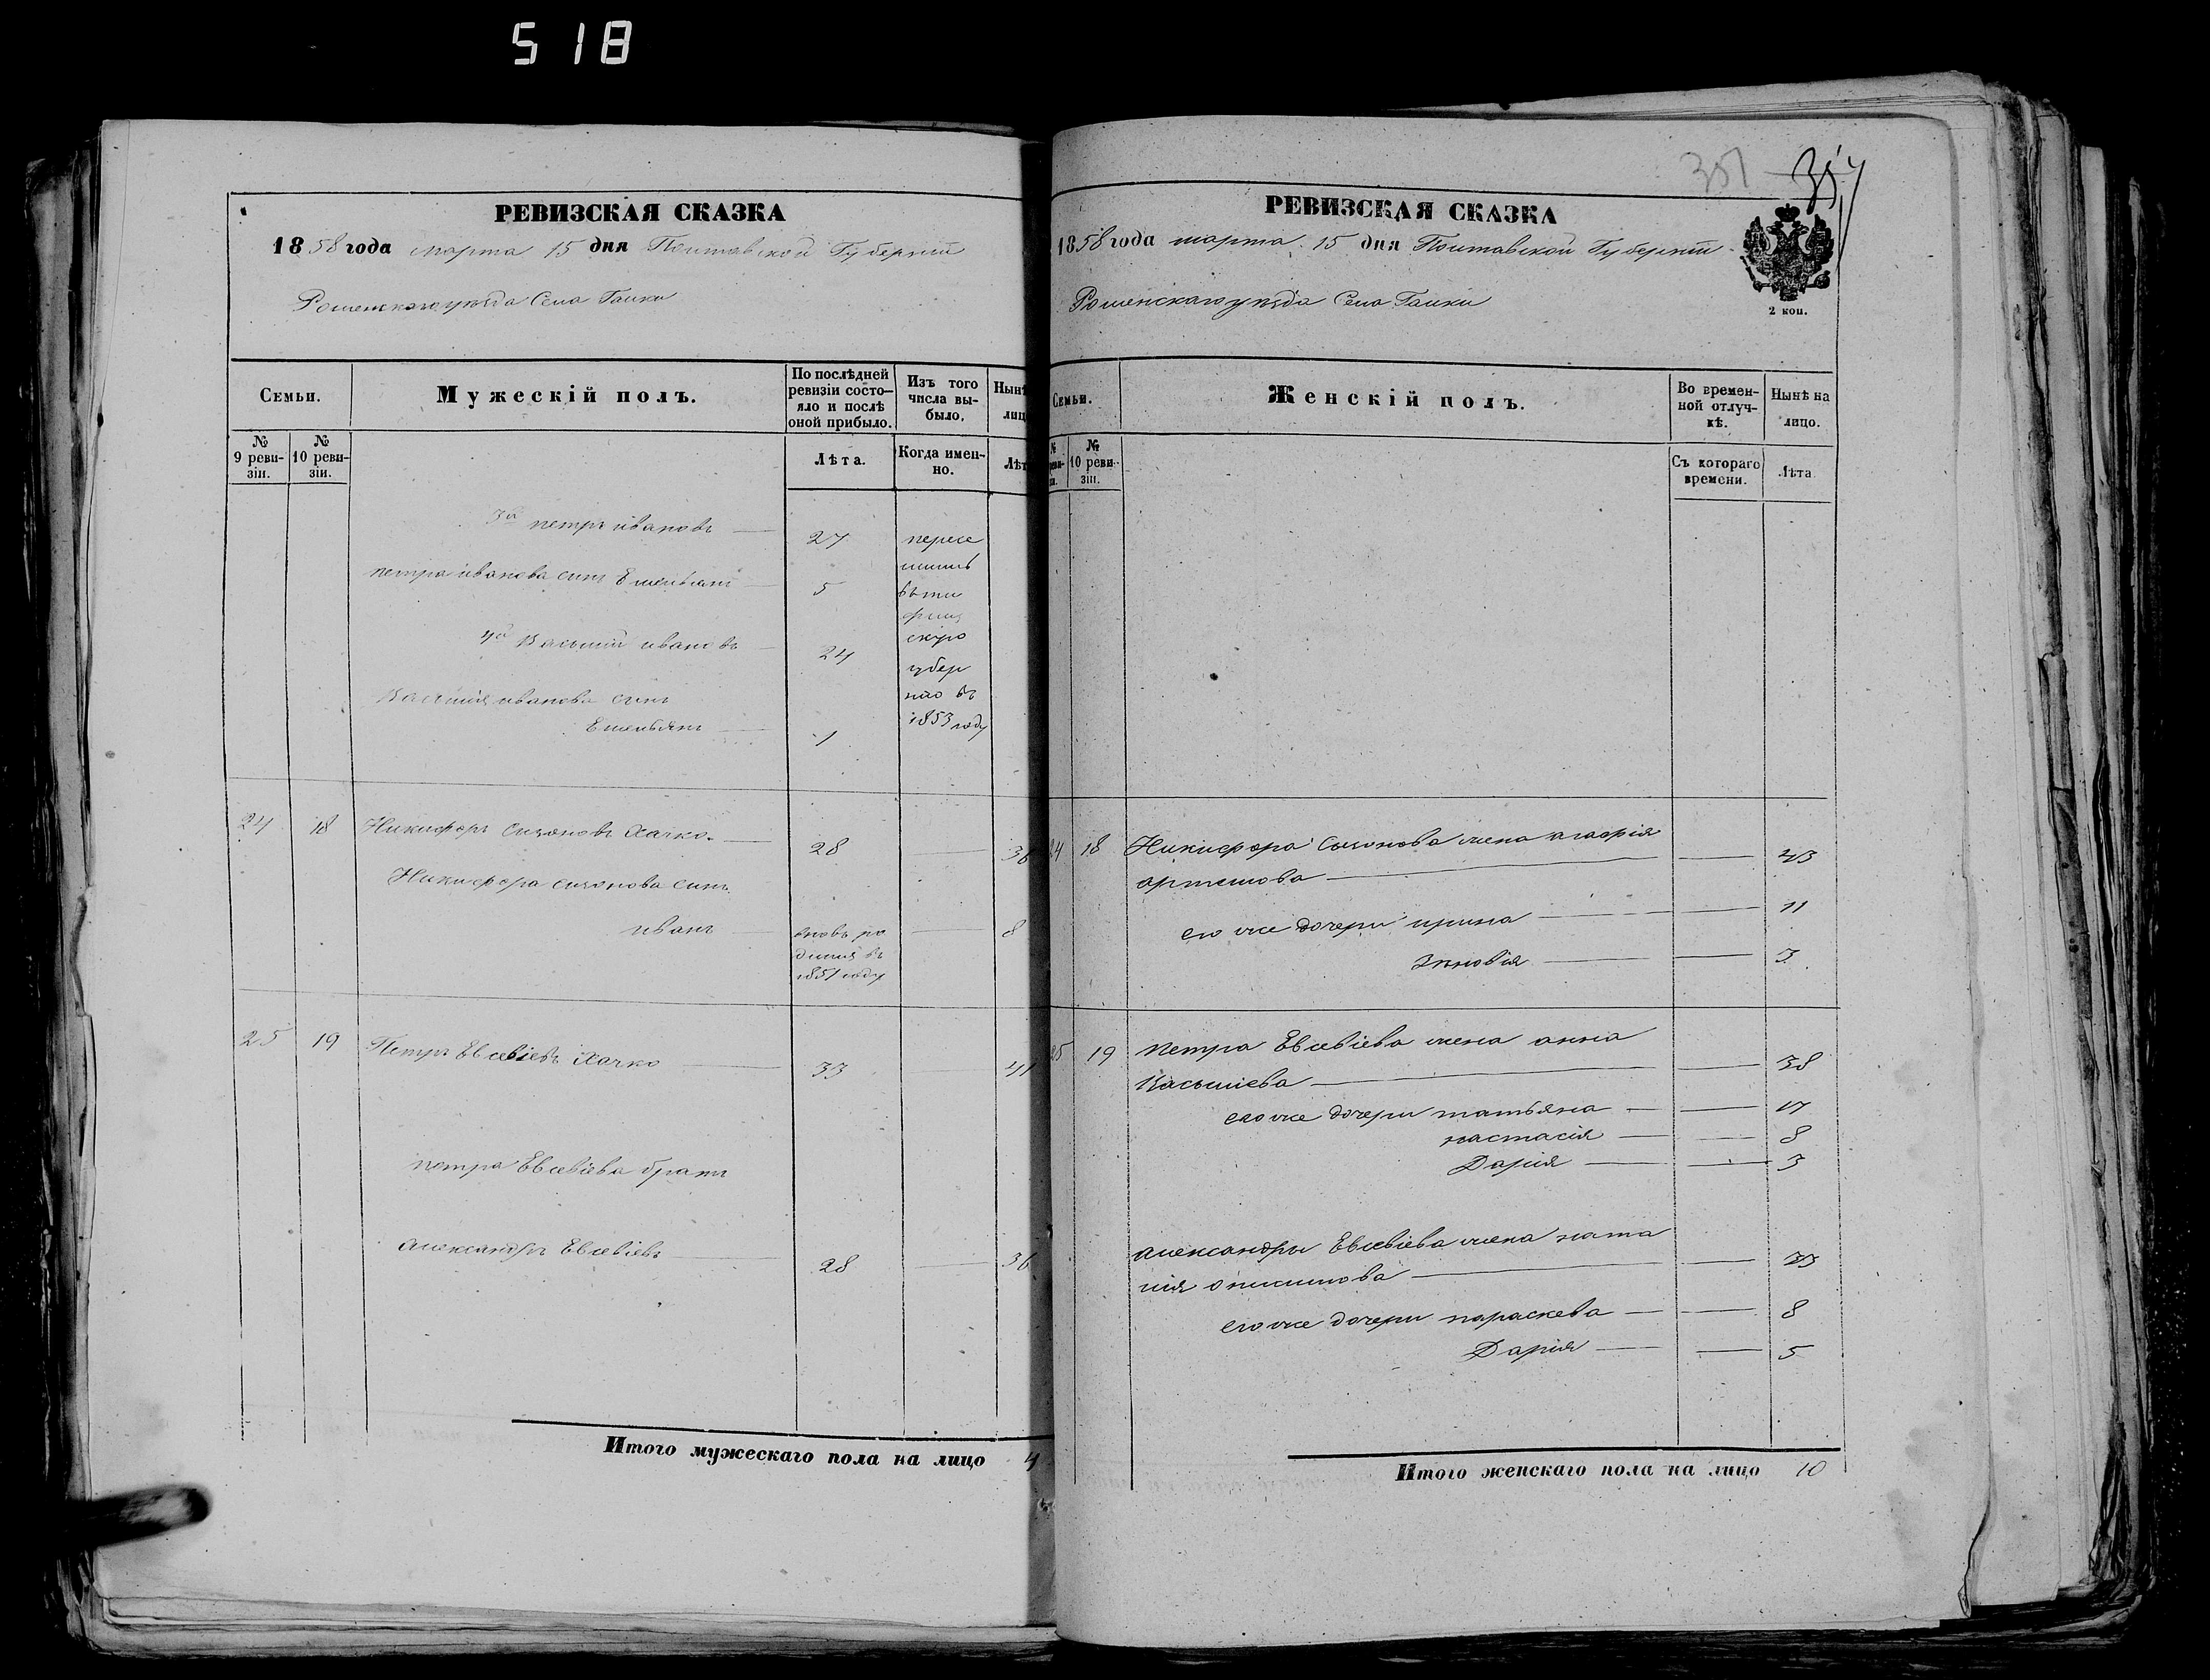 518
РЕВИЗСКАЯ СКАЗКА
1858 года марта 15 дня Полтавской Губернии
Роменскаго уезда Села Галки
Семьи.
Мужескій полъ.
По послѣдней ревизіи состо-
яло и послѣ оной прибыло.
Изъ того числа вы-
было.
Нынѣ
лиц
№ 9 реви-
зіи.
№ 10 реви-
зіи.
Лѣта.
Когда имен-
но.
Лѣт
3й петръ ивановъ 27
петра иванова сынъ Емельянъ 5
4й Василий ивановъ 24
Василия иванова сынъ
Емельянъ 1
пересе
лились
въ
скую
губер
нію въ
1853 году
24 18 Никифоръ Хачко. 28 36
Никифора сынъ
иванъ 8
вновь ро
дился въ
1851 году
25 19 Петръ Евсевіевъ Хачко 33 41
петра Евсевіева братъ
александръ Евсевіевъ 28 36
Итого мужескаго пола на лицо 4
351
РЕВИЗСКАЯ СКАЗКА
1858 года марта 15 дня Полтавской Губернии
Роменскаго уезда Села Галки
2 коп.
Семьи.
Женскій полъ.
Во времен-
ной отлуч-
кѣ.
Нынѣ на
лицо.
№ 10 реви-
зіи.
Съ котораго
времени.
Лѣта.
24 18 Никифора жена агафія
артемова 43
его же дочери ирина 11
зиновія 3
25 19 петра Евсевіева жена анна
Васильева 38
его же дочери татьяна 17
настасія 8
Дарія 3
александры Евсевіева жена ната
лія онисимова 33
его же дочери параскева 8
Дарія 5
Итого женскаго пола на лицо 10